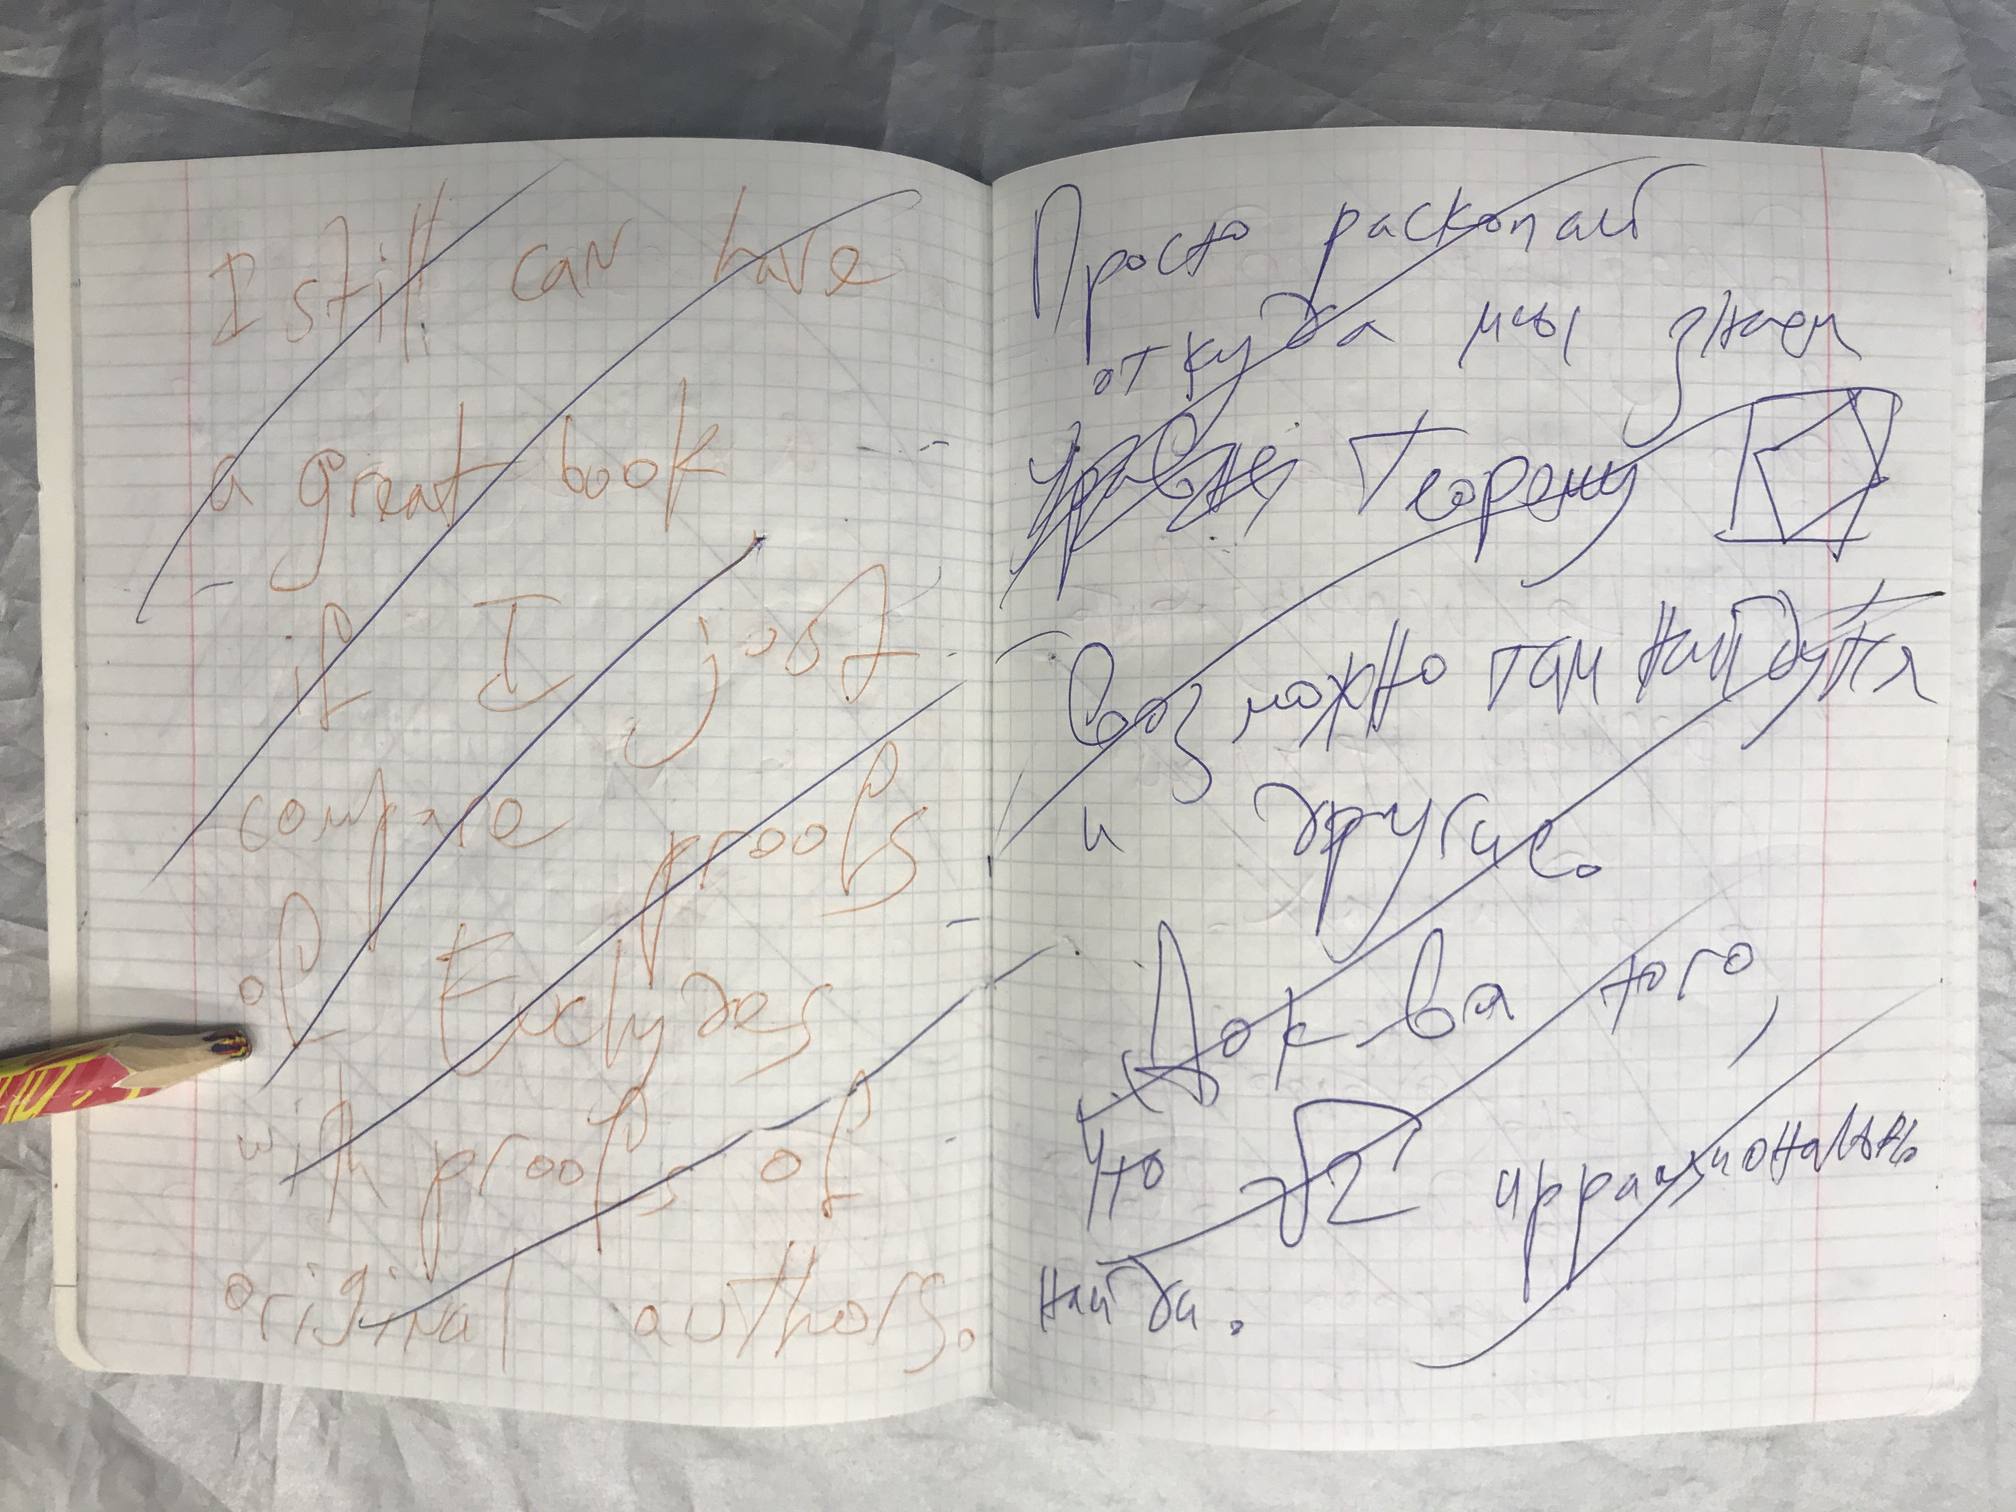 I still can have
a great book
if I just
compare proofs
of Euclydes
with proofs of
original authors.
Просто раскопай
откуда мы знаем
Теорему
Возможно там найдутся
и другие.
Док-ва того,
что √2 иррациональны
найди.